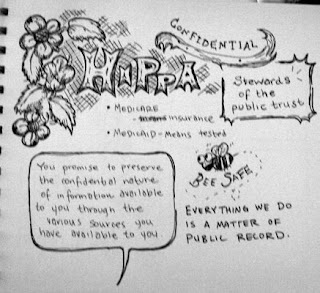 CONFIDENTIAL
HIPPA
Stewards
of the
public trust
• MEDICARE
- insurance
• MEDICAID - Means tested
You promise to preserve
the confidential nature
of information available
to you through the
various sources you
have available to you.
BEE SAFE
EVERYTHING WE DO
IS A MATTER OF
PUBLIC RECORD.